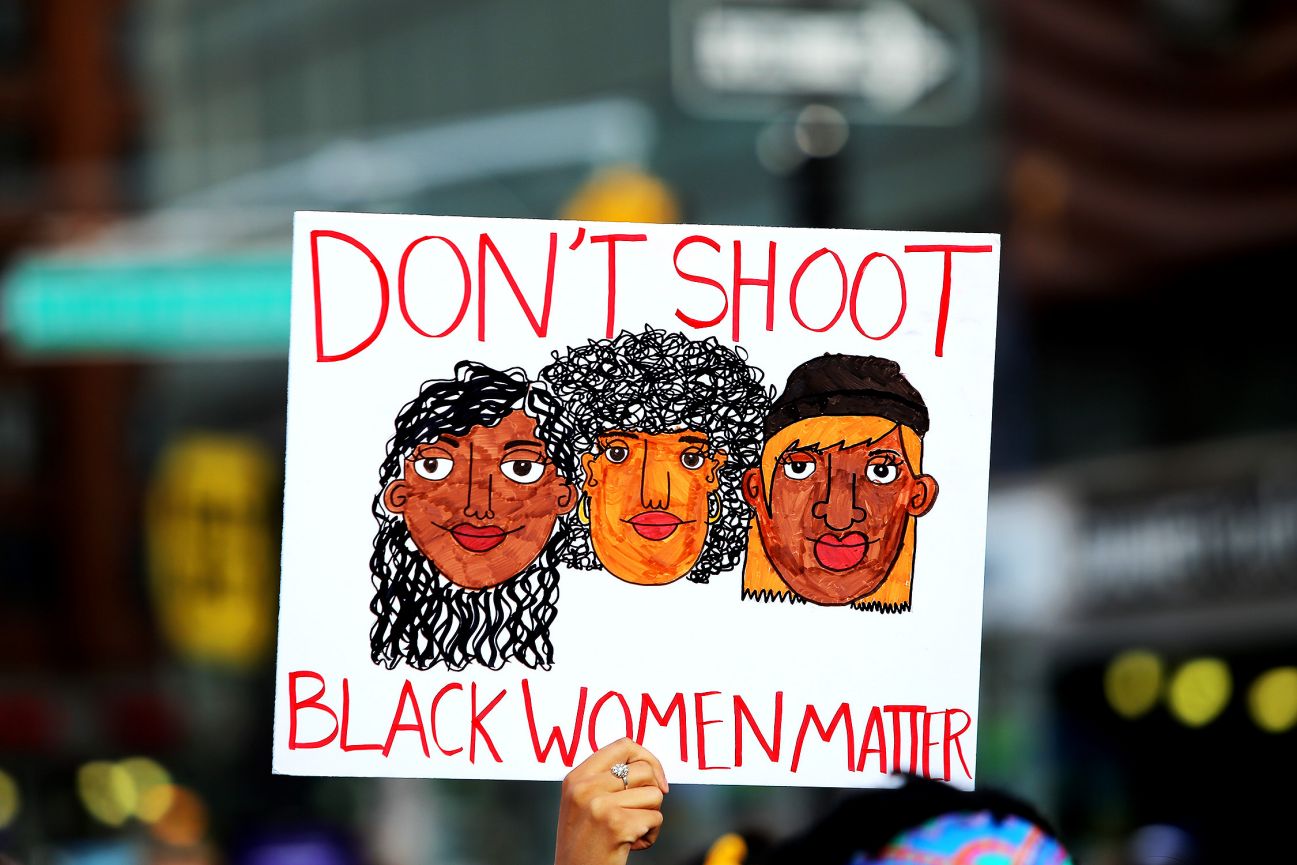 DON'T SHOOT
BLACK WOMEN MATTER